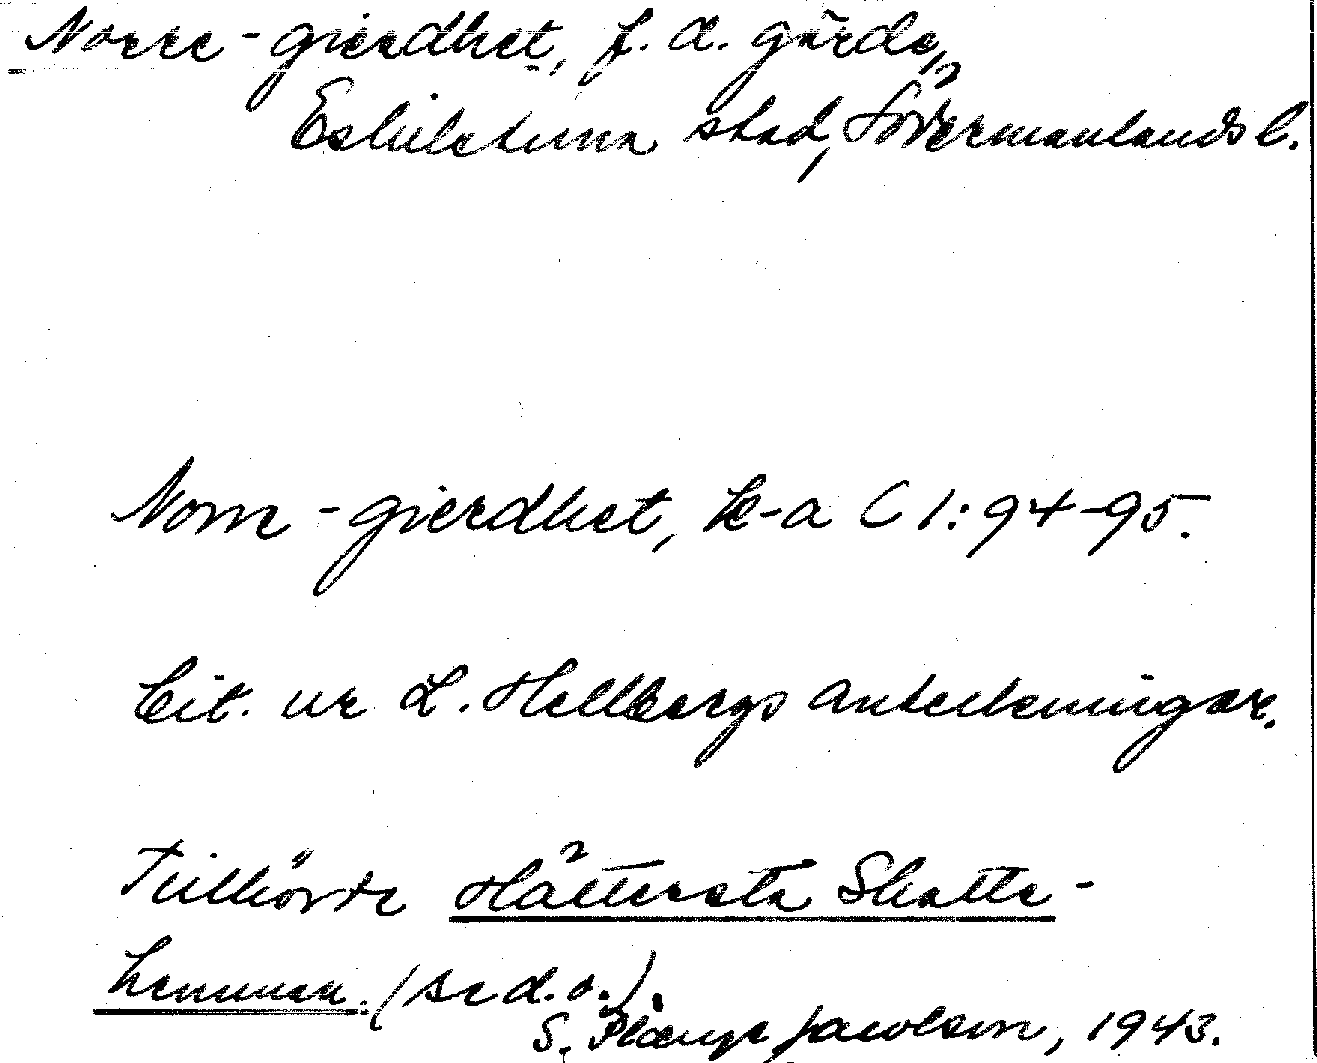 Norre-gierdhet, f. d. gärde,
Eskilstuna stad, Södermanlands l.
Norre-gierdhet, k-a C 1:94-95.
Cit. ur L. Hellbergs anteckningar.
Tillhörde Hättersta Skatte-
hemman. (se d. o.).
S. Jacobson, 1943.